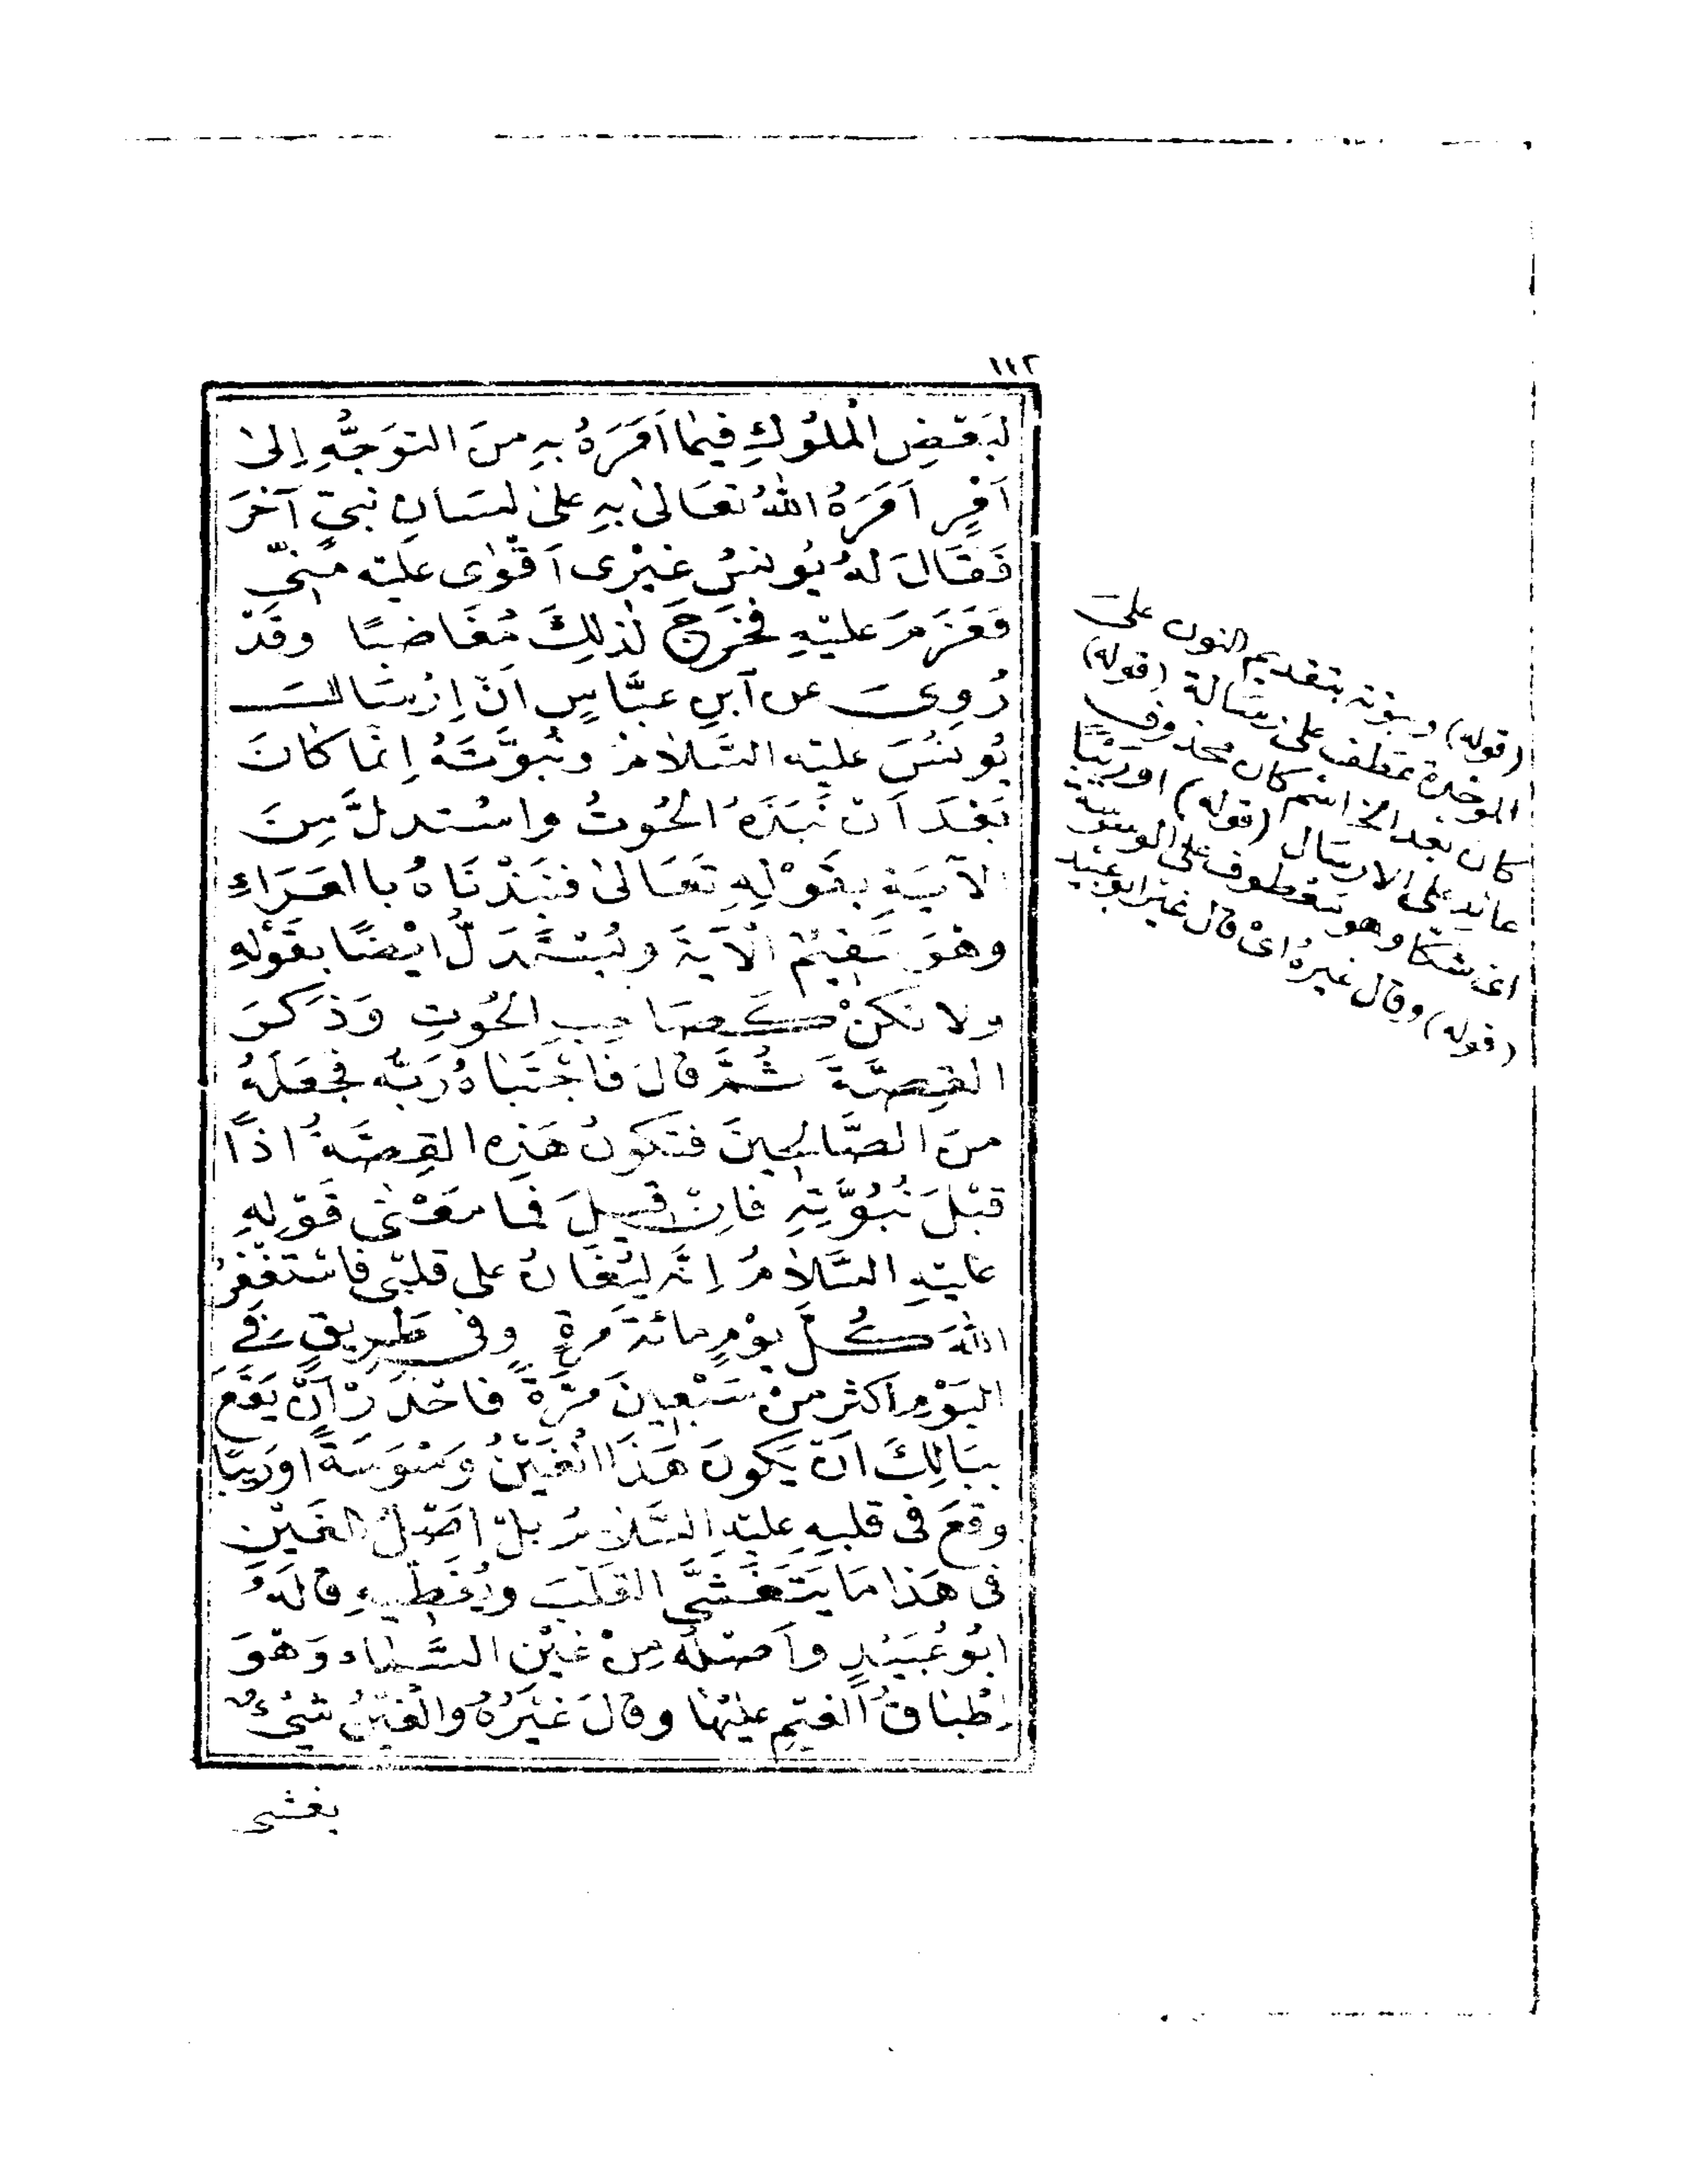 ١١٢
لِبَعْضِ الْمُلُوكِ فِيمَا اَمَرَهُ بِهِ مِنَ التَّوَجُّهِ اِلىٰ
اَمْرٍ اَمَرَهُ اللّٰهُ تَعَالىٰ بِهِ عَلىٰ لِسَانِ نَبِيٍّ آخَرَ
فَقَالَ لَهُ يُونُسُ غَيْرِى اَقْوٰى عَلَيْهِ مِنّى
فَعَزَمَ عَلَيْهِ فَخَرَجَ لِذٰلِكَ مُغَاضِبًا وَقَدْ
رُوِىَ عن ابنِ عبَّاسٍ اَنَّ اِرْسَالَ
يُونُسَ عليْهِ السَّلَامُ ونُبُوَّتَهُ اِنَّمَا كَانَ
بَعْدَ اَنْ نَبَذَهُ الحُوتُ واسْتدلَّ مِنَ
الآيَةِ بِقَوْلِهِ تَعَالىٰ فَنَبَذْنَاهُ بِالعَرَاءِ
وهْوَ سَقِيمٌ الْآيَةَ ويُسْتَدَلُّ ايْضًا بِقَوْلِهِ
ولا تَكُنْ كَصَاحِبِ الحُوتِ وَذَكَرَ
القِصَّةَ ثُمَّ قَالَ فَاجْتَبَاهُ رَبُّهُ فَجَعَلَهُ
مِنَ الصَّالِحِينَ فتَكُونُ هَذِهِ القِصَّةُ اذًا
قَبْلَ نُبُوَّتِهِ فَاِنْ قِيلَ فَمَا مَعْنَى قَوْلِهِ
عَلَيْهِ السَّلَامُ اِنَّه لَيُغَانُ على قلبِى فَاسْتَغْفِرُ
اللّٰهَ كُلَّ يوْمٍ مائةَ مَرةٍ وفى طَرِيقٍ فِى
اليَوْمِ اكثرَ مِنْ سَبْعِينَ مَرَّةً فاحْذَرْ اَنْ يَقَعَ
بِبَالِكَ اَنْ يَكُونَ هَذَا الْغَيْنُ وَسْوَسَةً اورَيْبًا
وقَعَ فى قلبِهِ عليْهِ السَّلَامُ بلْ اصْلُ الغَيْنِ
فى هَذا مَا يَتَغَشَّى القَلْبَ ويُغَطِّيهِ قالَهُ
ابُو عُبَيْدٍ واَصْلُهُ مِنْ غَيْنِ السَّمَاءِ وَهْوَ
اِطْبَاقُ الغَيْمِ عليْهَا وقالَ غَيْرُهُ والْغَيْنُ شَيْءٌ
يغشى
(قوله) ونبوته بتقديم النون على
الموحدة عطف على رسالة (قوله)
كان بعد الخ اسم كان محذوف
عائد على الارسال (قوله) اوريبًا
اى شكا وهو معطوف على الوسوسة
(قوله) وقال غيرهُ اىْ قال غير ابو عبيد